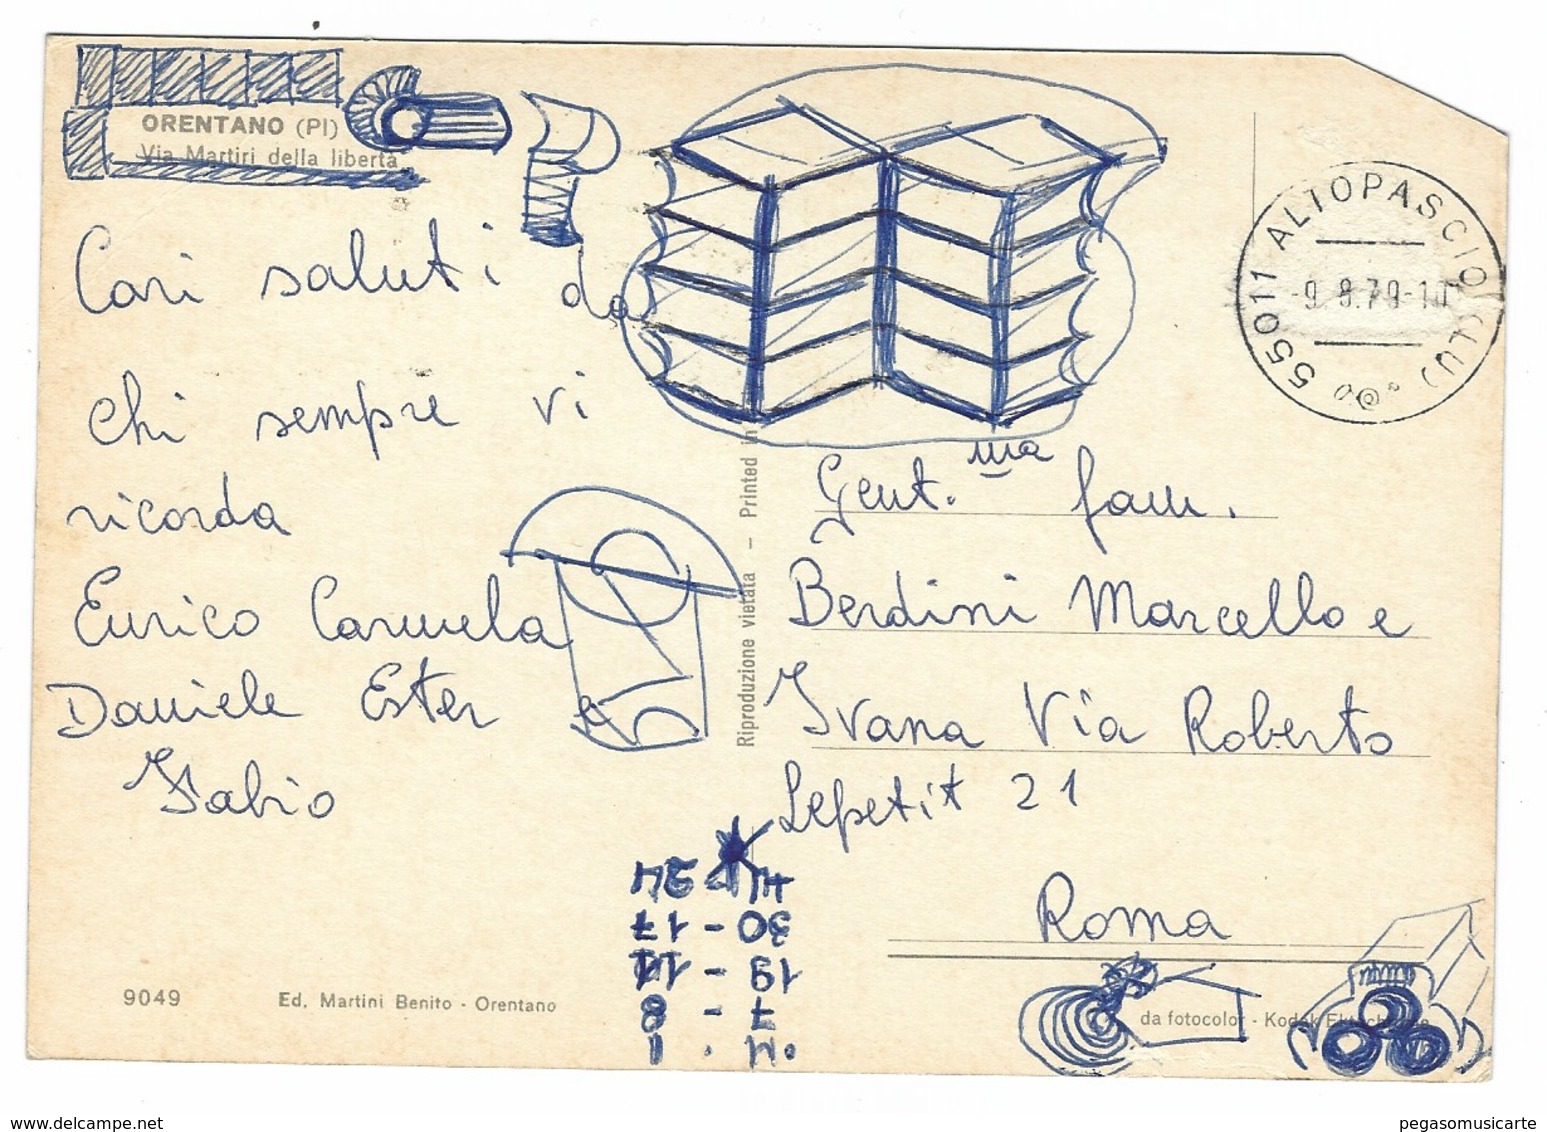 ORENTANO (PI)
Via Martiri della libertà
Cari saluti da
chi sempre vi
ricorda
Enrico Carmela
Daniele Ester e
Fabio
9049
Ed. Martini Benito - Orentano
Riproduzione vietata - Printed in
55011 ALTOPASCIO (LU)
-9.8.79-10
Gent.ma fam.
Berdini Marcello e
Ivana Via Roberto
Lepetit 21
Roma
da fotocolor - Kodak
M. 1
7 - 8
19 - 11
30 - 17
41 - 24
www.delcampe.net
pegasomusicarte